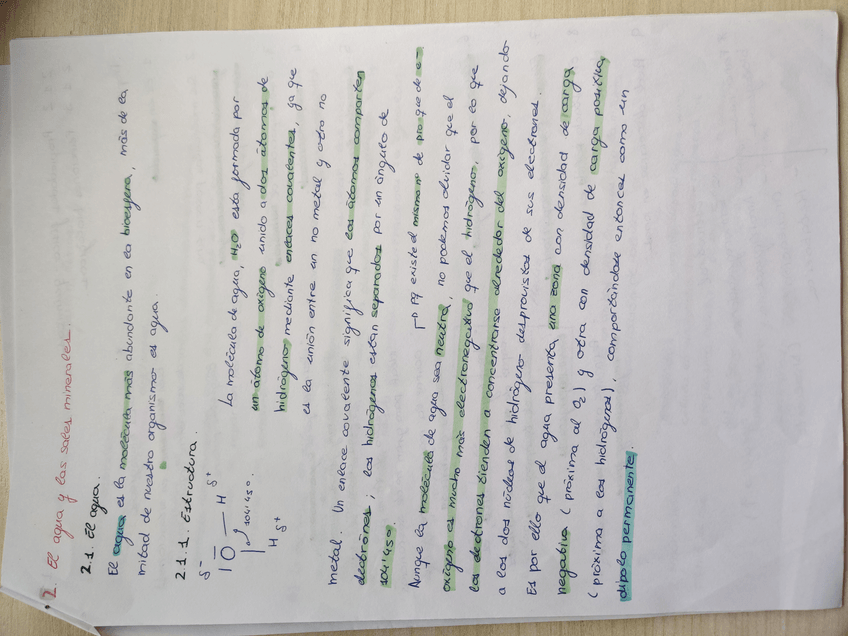 2. El agua y las sales minerales.
2.1. El agua.
El agua es la molécula más abundante en la bioesfera, más de la
mitad de nuestro organismo es agua.
2.1.1. Estructura.
δ-
O
H δ+
104'450.
H
δ+
La molécula de agua, H2O está formada por
un átomo de oxígeno unido a dos átomos de
hidrógeno mediante enlaces covalentes, ya que
es la unión entre un no metal y otro no
metal. Un enlace covalente significa que los átomos comparten
electrones; los hidrógenos están separados por un ángulo de
104'450.
pq existe el mismo nº de p+o que de e-
Aunque la molécula de agua sea neutra, no podemos olvidar que el
oxígeno es mucho más electronegativo que el hidrógeno, por lo que
los electrones tienden a concentrarse alrededor del oxígeno, dejando
a los dos núcleos de hidrógeno desprovistos de sus electrones.
Es por ello que el agua presenta una zona con densidad de carga
negativa (próxima al O2) y otra con densidad de carga positiva
(próxima a los hidrógenos), comportándose entonces como un
dipolo permanente.